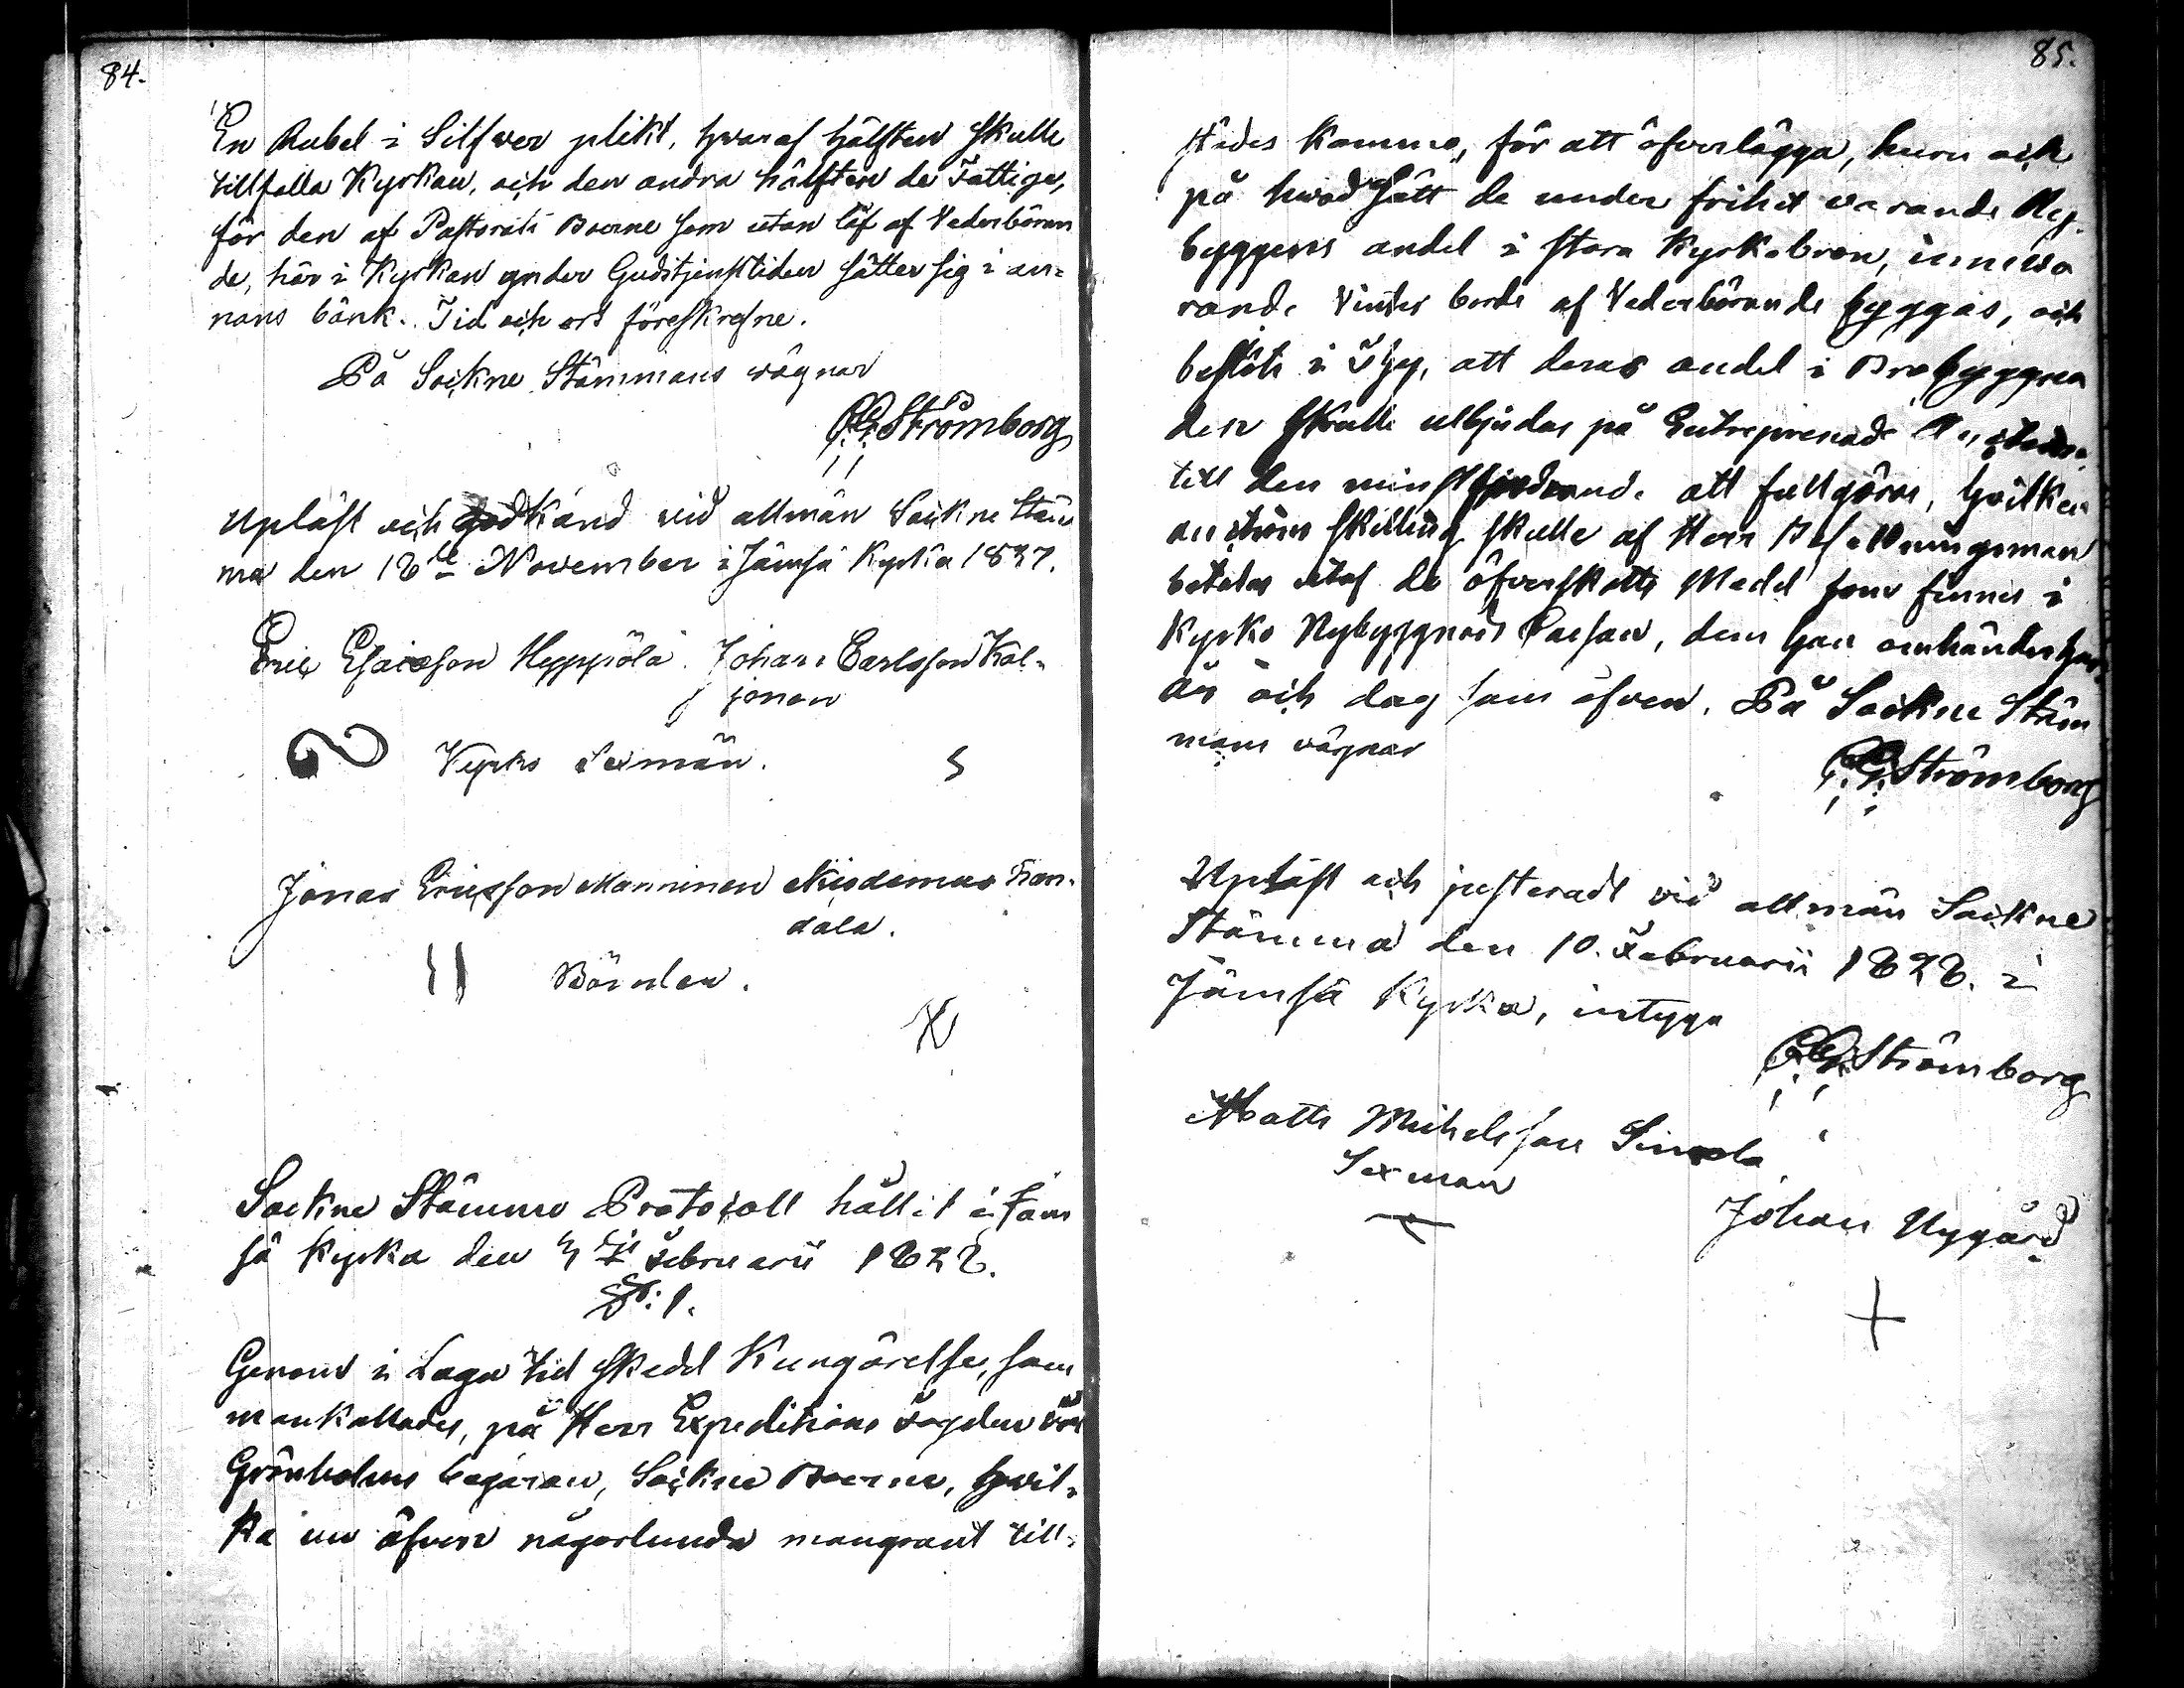 84.
En Rubel i Silfwer plikt, hwaraf hälften skulle
tillfalla Kyrkan, och den andra hälften de Fattige,
för den af Pastorats Boerne som utan lof af Vederböran
de, här i Kyrkan under Gudstjensttiden sätter sig i an=
nans bänk. Tid och ort föreskrefne.
På Sockne Stämmans wägnar
C.G. Strömborg
Upläst och godkänd vid allmän Sockne Stäm
ma den 18de November i Jämsä Kyrka 1837.
Eric Esaiasson Heppölä. Johan Carlsson Kal=
jonen
Kyrko Sexmän.
Jonas Ericsson Manninen Nicodemus Kan=
dala.
Bönder.
Sockne Stämmo Protocoll hållit i Jäm
sä Kyrka den Februarii 1828.
§: 1.
Genom i Laga tid skedd Kungörelse, sam
mankallades, på Herr Expeditions Fogden
Grönholms begäran, Sockne Boerne, hwil=
ka nu äfven någorlunda mangrant till=
85.
städes komma, för att öfverlägga, huru och
på hwad sätt de under frihet varande Ny=
byggens andel i stora Kyrkobron, innewa
rande Vinter borde af Vederbörande byggas, och
beslöts i att deras andel i Brobyggna
den skulle utbjudas på Entreprenad
till den minstbjudande att fullgöra, hvilken
skilling skulle af Herr Befallningsman
betalas utaf de öfverskotts Medel som finnes i
Kyrko Nybyggnads Cassan, dem han omhänderhar.
år och dag som ofvan. På Sockne Stäm
mans wägnar
C.G. Strömborg
Upläst och justeradt vid allmän Sockne
Stämma den 10. Februarii 1828. i
Jämsä Kyrka, intyga
C.G. Strömborg
Matts Michelsson Simola
Sexman
Johan Nygård